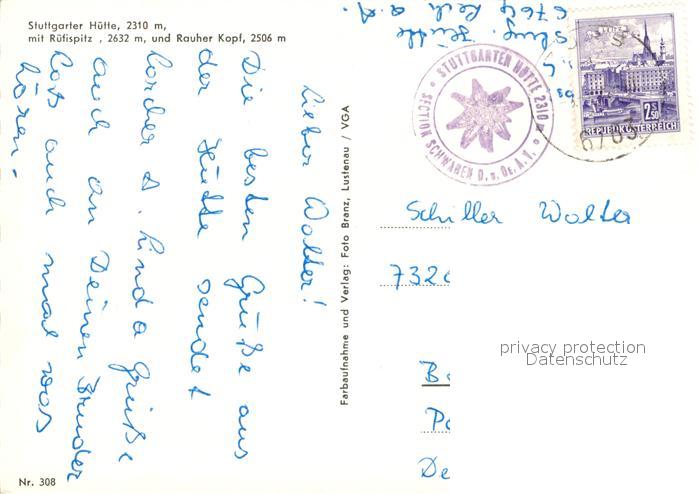 Stuttgarter Hütte, 2310 m,
mit Rüfispitz , 2632 m, und Rauher Kopf, 2506 m
Lieber Walter!
Die besten Grüße aus
der Hütte sendet
Linda Grüße
auch an Deinen Bruder
Laß auch mal was
hören.
Nr. 308
Farbaufnahme und Verlag: Foto Branz, Lustenau / VGA
Hütte
6764 Lech a. A.
STUTTGARTER HÜTTE 2310 m
SECTION SCHWABEN D. u. Oe. A. V.
2.50
REPUBLIK ÖSTERREICH
6763
Schiller Walter
732
B
Po
De
privacy protection
Datenschutz